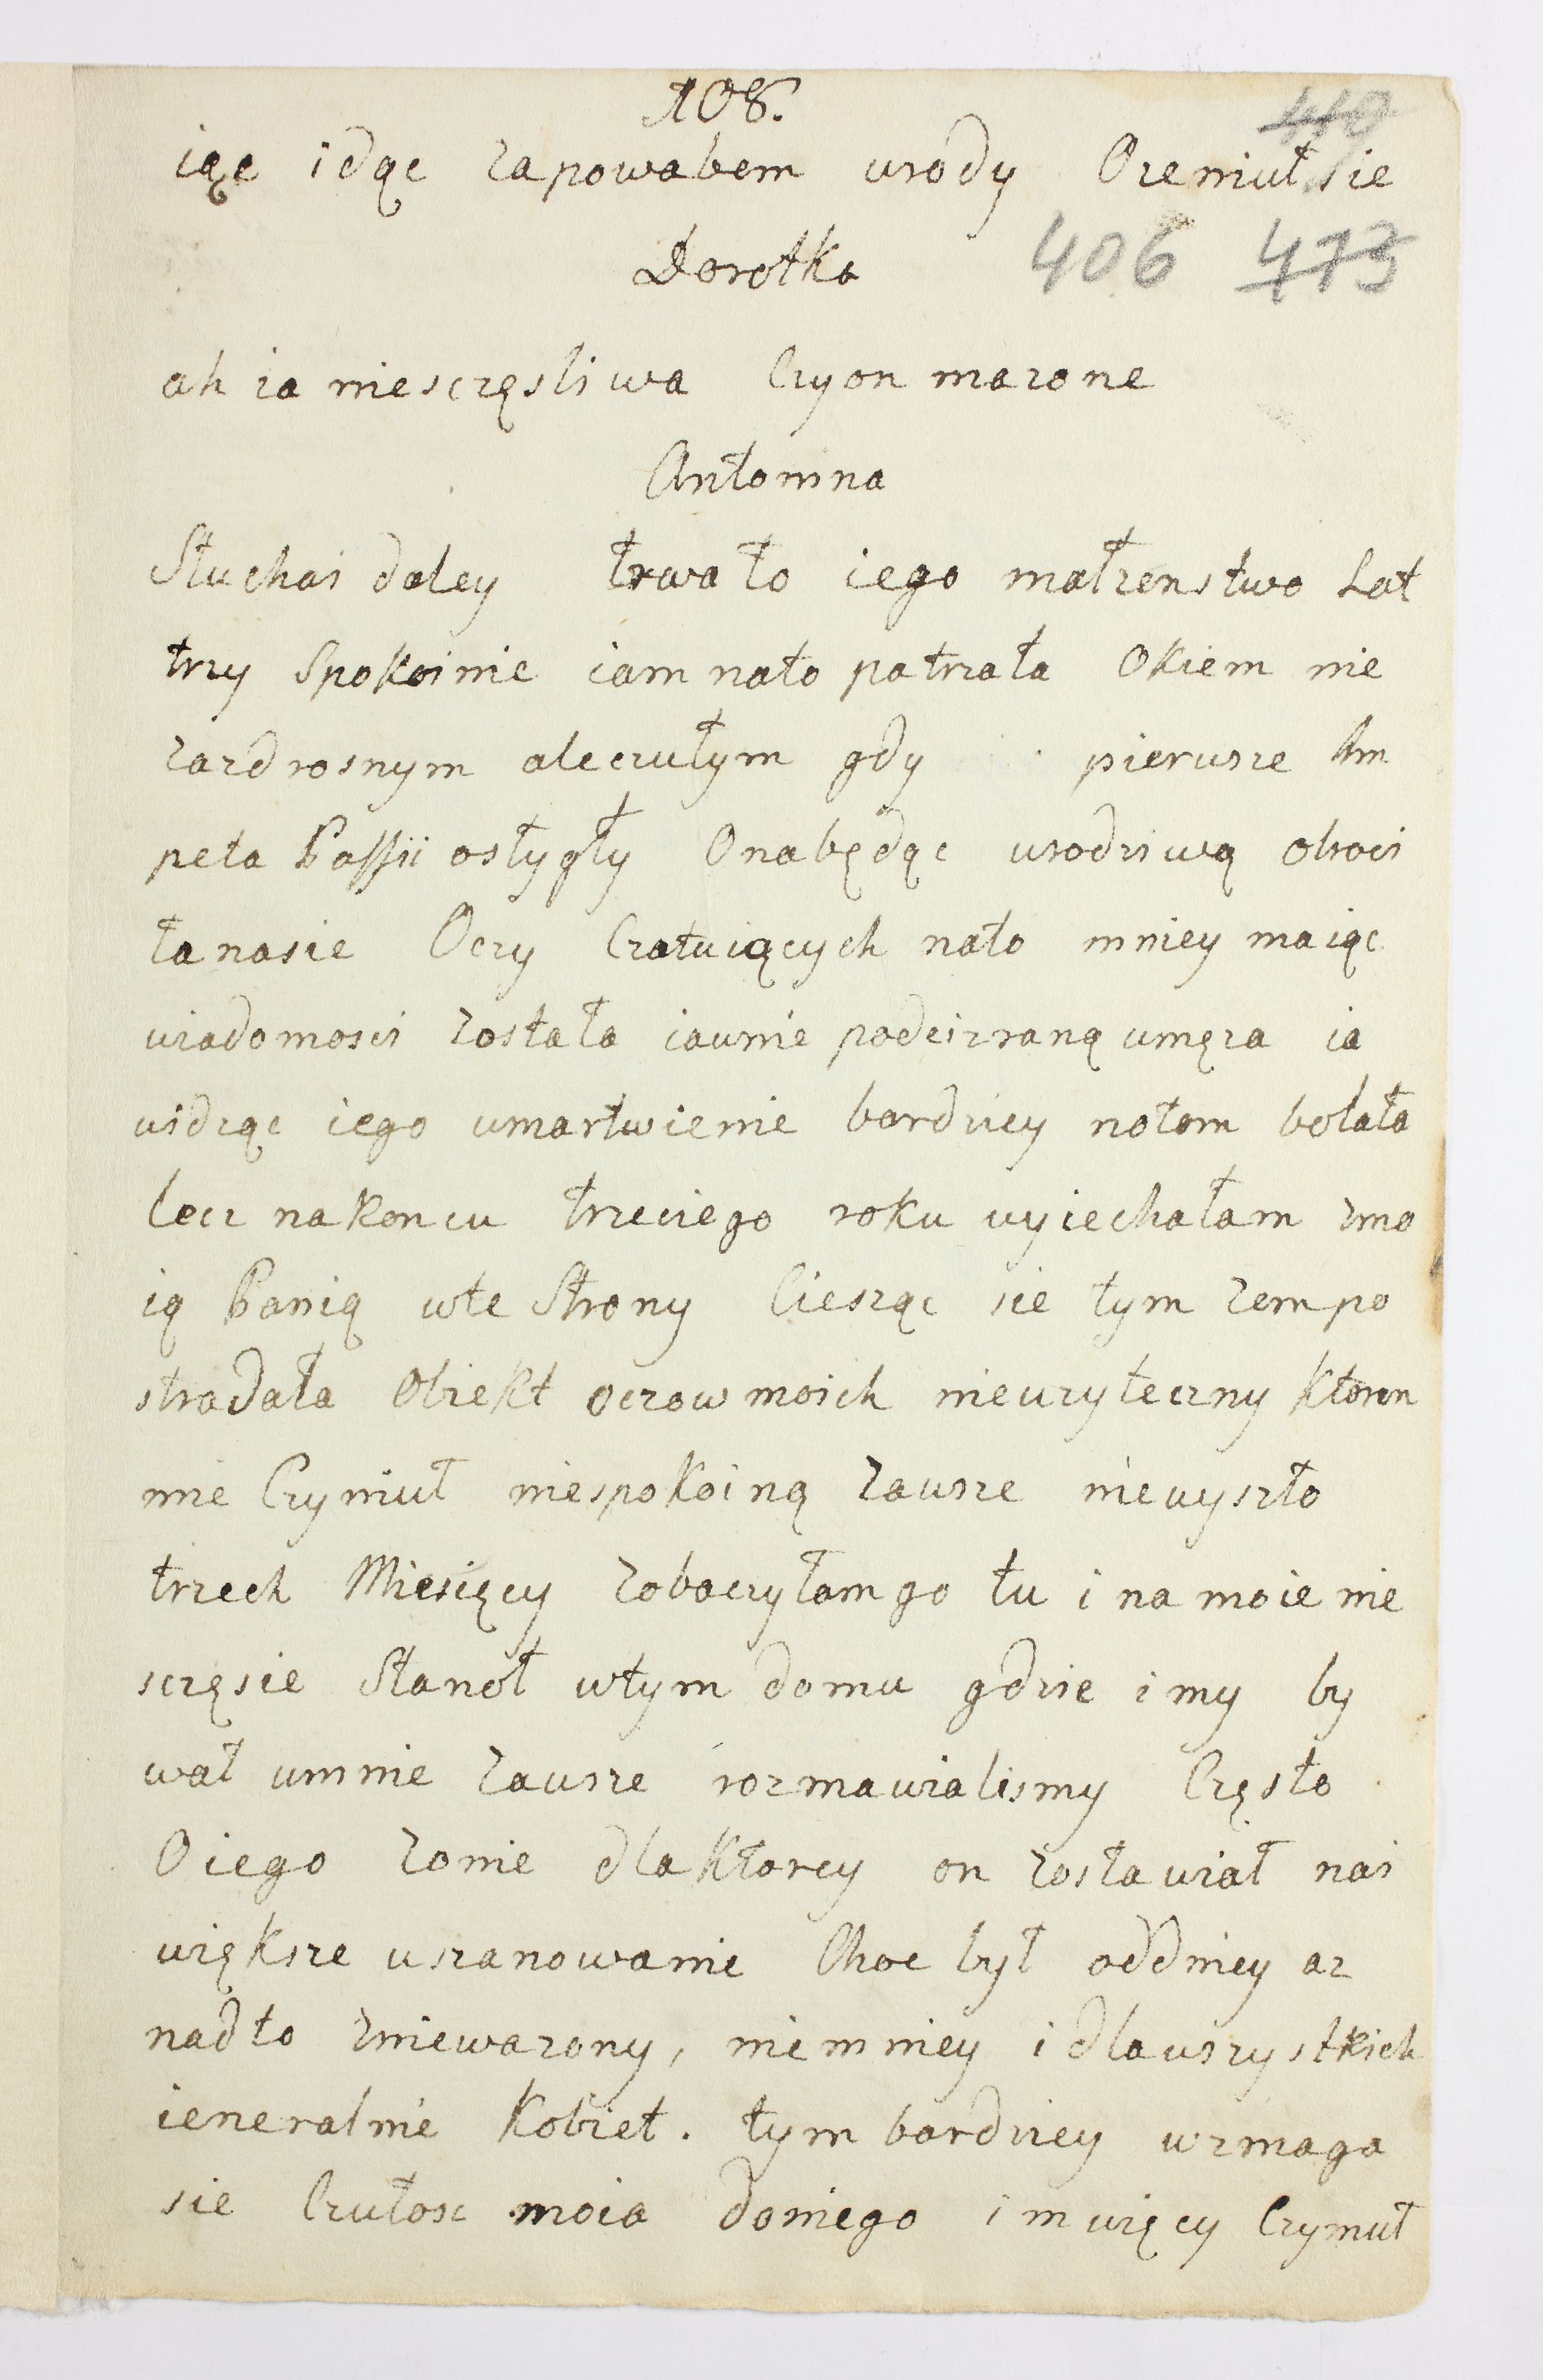 108.
410
iąc idąc zapowabem urody Ozeniuł sie
Dorotka
406 473
ah ia niesczęsliwa Czyon mazone
Antonina
Słuchai daley trwało iego małzenstwo Lat
trzy Spokoinie iam nato patrzała Okiem nie
zazdrosnym aleczułym gdy pierwsze Im
peta Passii ostygły Onabędąc urodziwą obroci
łanasie Oczy Czatuiących nato mniey maiąc
wiadomosci została iawnie podeizraną umęza ia
widząc iego umartwienie bardziey natom bolała
lecz nakoncu trzeciego roku wyiechałam zmo
ią Panią wte Strony Ciesząc sie tym zempo
stradała Obiekt oczow moich nieuzyteczny ktoren
mie Czyniuł niespokoiną zawsze niewyszło
trzech Miesięcy zobaczyłamgo tu i na moie nie
sczęsie Stanoł wtym domu gdzie imy by
wał umnie zawsze rozmawialismy Często
Oiego zonie dlaktorey on zostawiał nai
większe uszanowanie Choc był oddniey az
nadto zniewazony, niemniey i dlawszystkich
ieneralnie Kobiet. tym bardziey wzmaga
sie Czułosc moia doniego imwięcy Czymuł